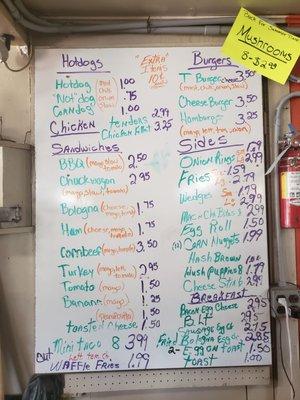 Check for Summer Time
Mushrooms
8-$2.99
Hotdogs
"Extra"
Items
10¢
Hotdog 1.00
"Not" dog .75
Corndog 1.00
Chicken tenders 2.99
Chicken fillet 3.25
Sandwiches
BBQ (mayo, slaw, tomato) 2.50
Chuckwagon 2.95
(mayo, slaw, tomato)
Bologna (cheese, mayo) 1.75
Ham (cheese, mayo) 1.75
Cornbeef 3.50
Turkey (mayo, lett, tomato) 2.95
Tomato (mayo) 1.50
Banana (mayo) .25
toasted Cheese 1.50
Mini taco 8 3.99
Waffle Fries 1.99
Burgers
T Burger cheese 3.50
(must, chili, onion, slaw)
Cheese Burger 3.50
Hamburger 3.25
(mayo, lett, tom, onion)
Sides
Onion Rings 2.99
Fries 1.59
Wedges 1.79
2.99
Mac-n-Ch Bites 8 2.99
Egg Roll 1.50
(12) Corn Nuggets 1.99
Hash Brown 1.00
Hush Puppies 8 1.79
Cheese Stix
Breakfast
Bacon Egg Cheese 2.95
BLT
Sausage Egg Ch
Fried Bologna Egg Ch
2-Egg on Toast 1.50
Toast 1.00